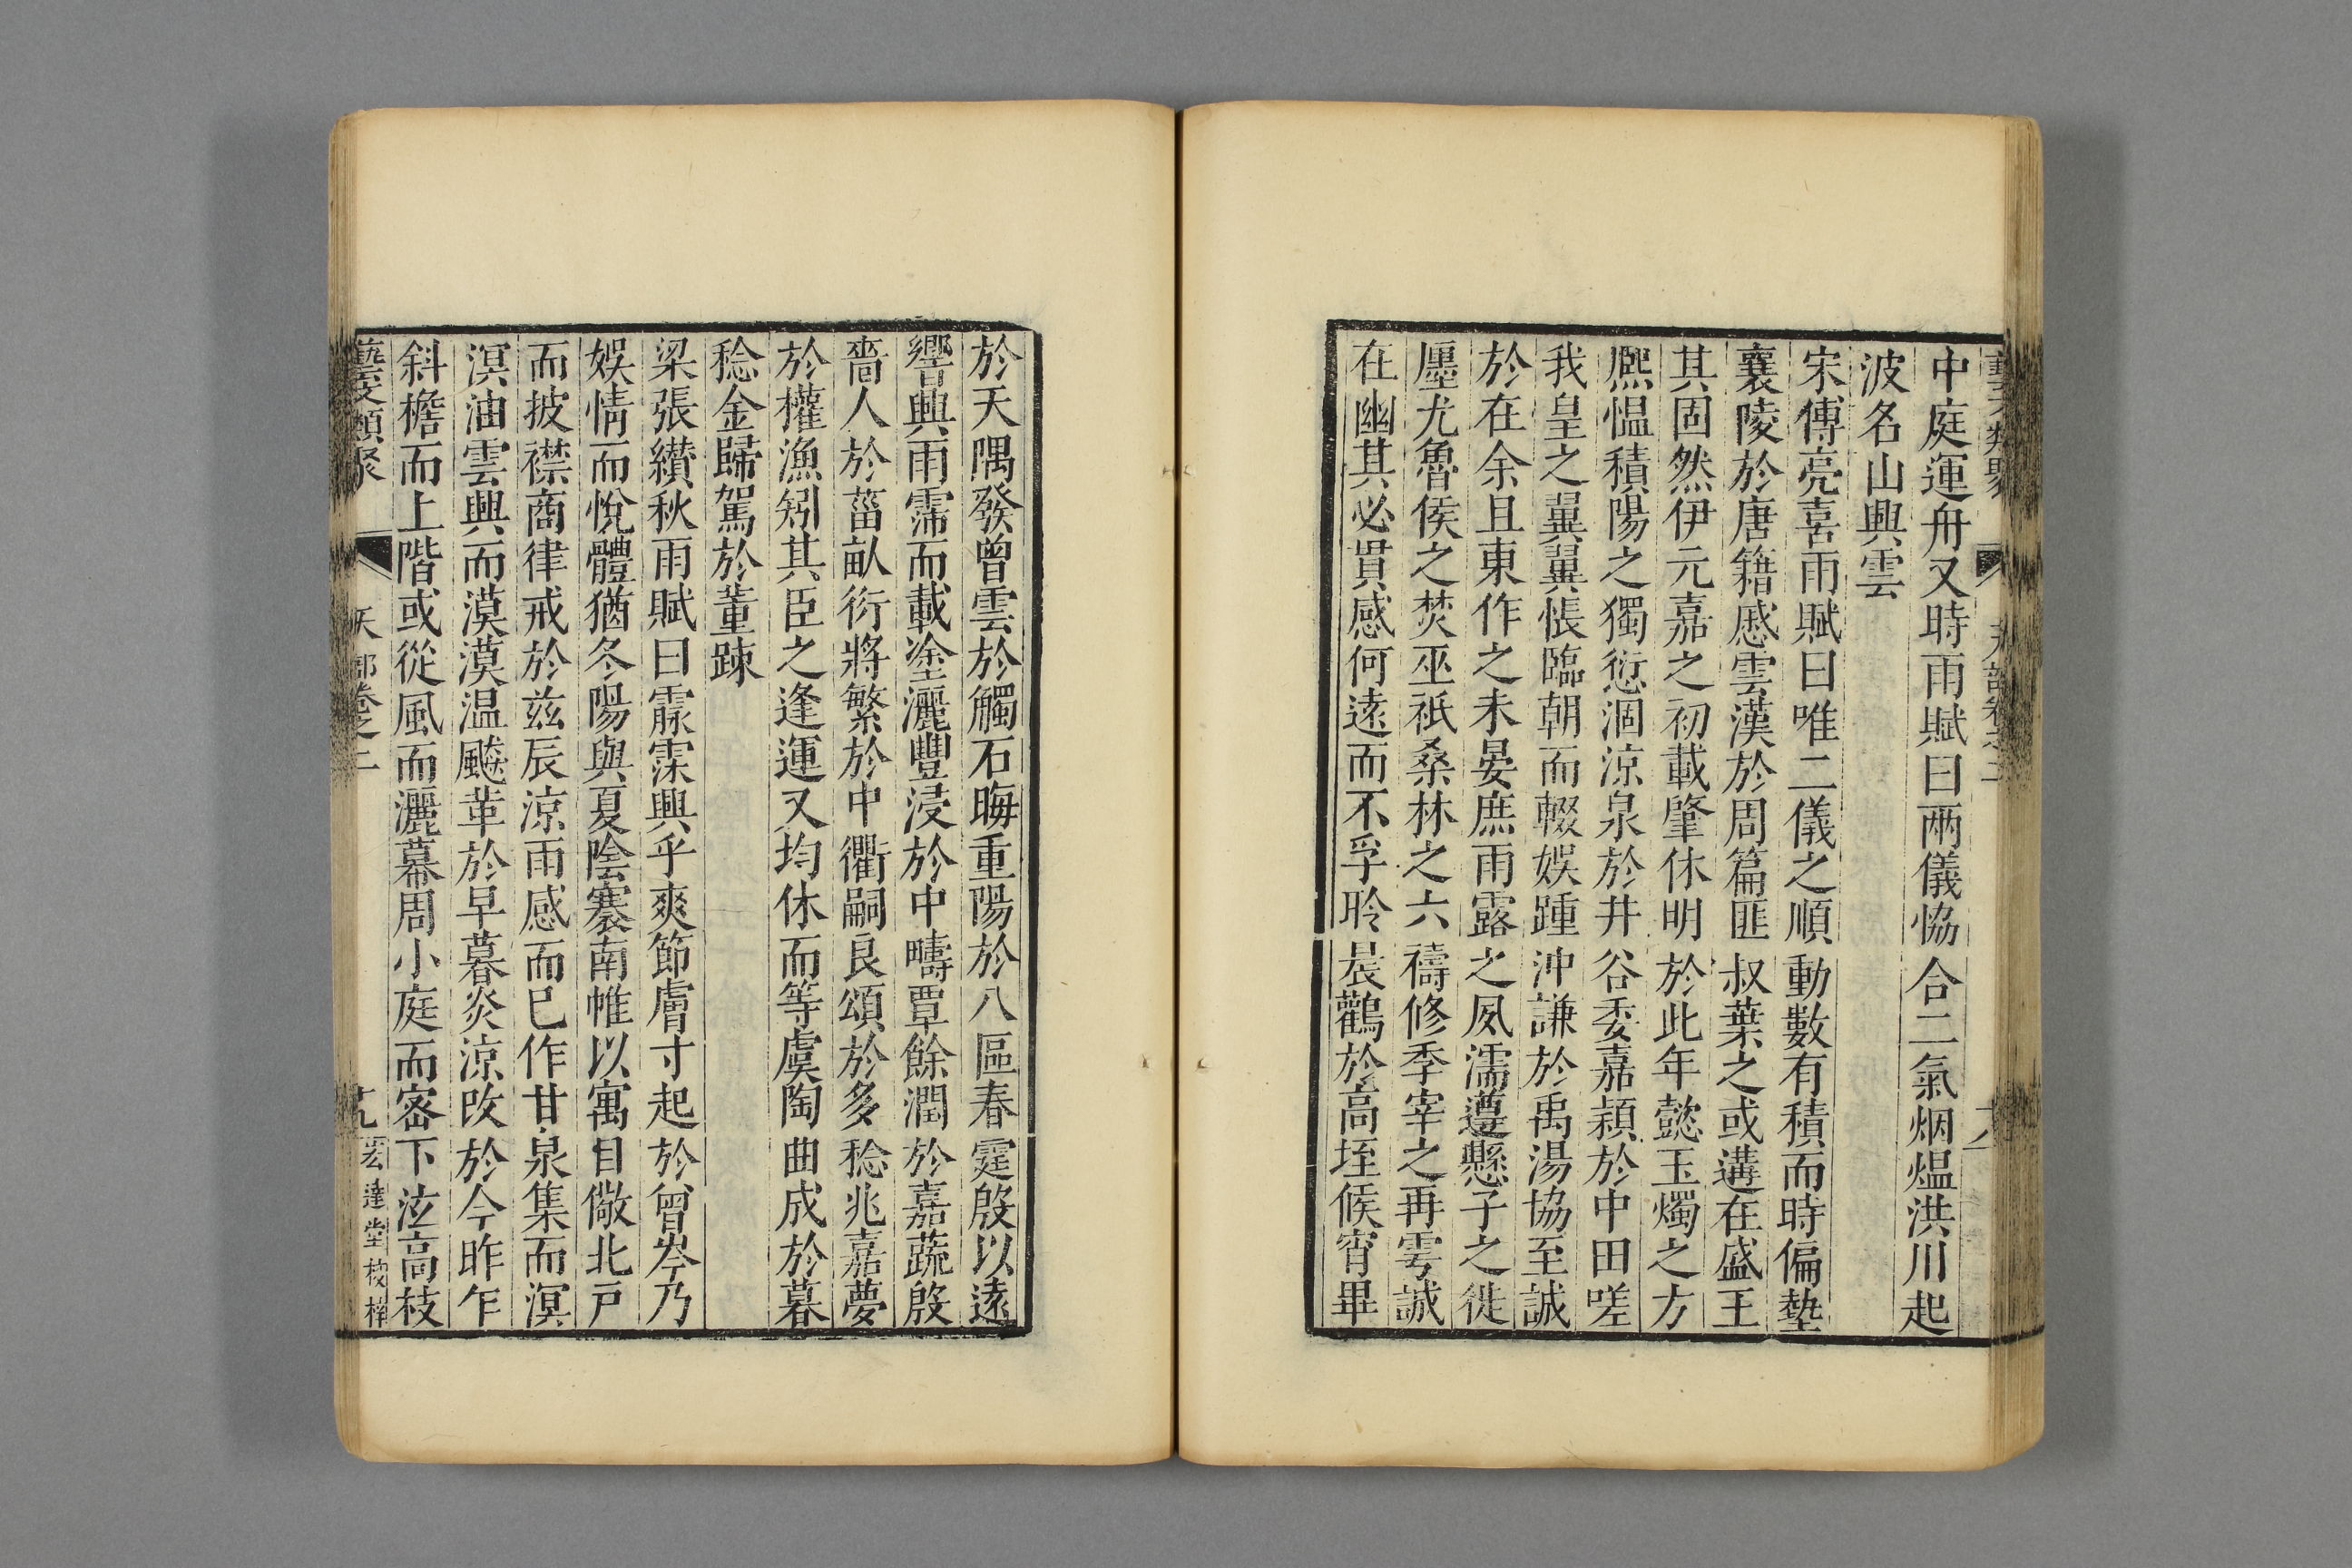 中庭運舟又時雨賦曰兩儀恊合二氣烟熅洪川起
波名山興雲
宋傅亮喜雨賦曰唯二儀之順動數有積而時偏墊
襄陵於唐籍慼雲漢於周篇匪叔葉之或遘在盛王
其固然伊元嘉之初載肇休明於此年懿玉燭之方
熈愠積陽之獨愆涸涼泉於井谷委嘉穎於中田嗟
我皇之翼翼悵臨朝而輟娛踵沖謙於禹湯協至誠
於在余且東作之未晏庶雨露之夙濡遵懸子之徙
㕓尤魯侯之焚巫祇桑林之六禱修季宰之再雩誠
在幽其必貫感何遠而不孚聆晨鸛於高垤候宵畢
於天隅發曾雲於觸石晦重陽於八區春霆殷以遠
響興雨霈而載塗灑豐浸於中疇覃餘潤於嘉蔬殷
嗇人於菑畝衍將繁於中衢嗣良頌於多稔兆嘉夢
於權漁矧其臣之逢運又均休而等虞陶曲成於暮
稔金歸駕於董踈
梁張纘秋雨賦曰霡霂興乎爽節膚寸起於曾岑乃
娛情而悅體猶冬陽與夏陰褰南帷以寓目儆北戸
而披襟商律戒於茲辰涼雨感而巳作甘泉集而溟
溟油雲興而漠漠温飈革於早暮炎涼改於今昨乍
斜檐而上階或從風而灑幕周小庭而密下泫高枝
藝文類聚 天部卷之二 十九 宏達堂校梓